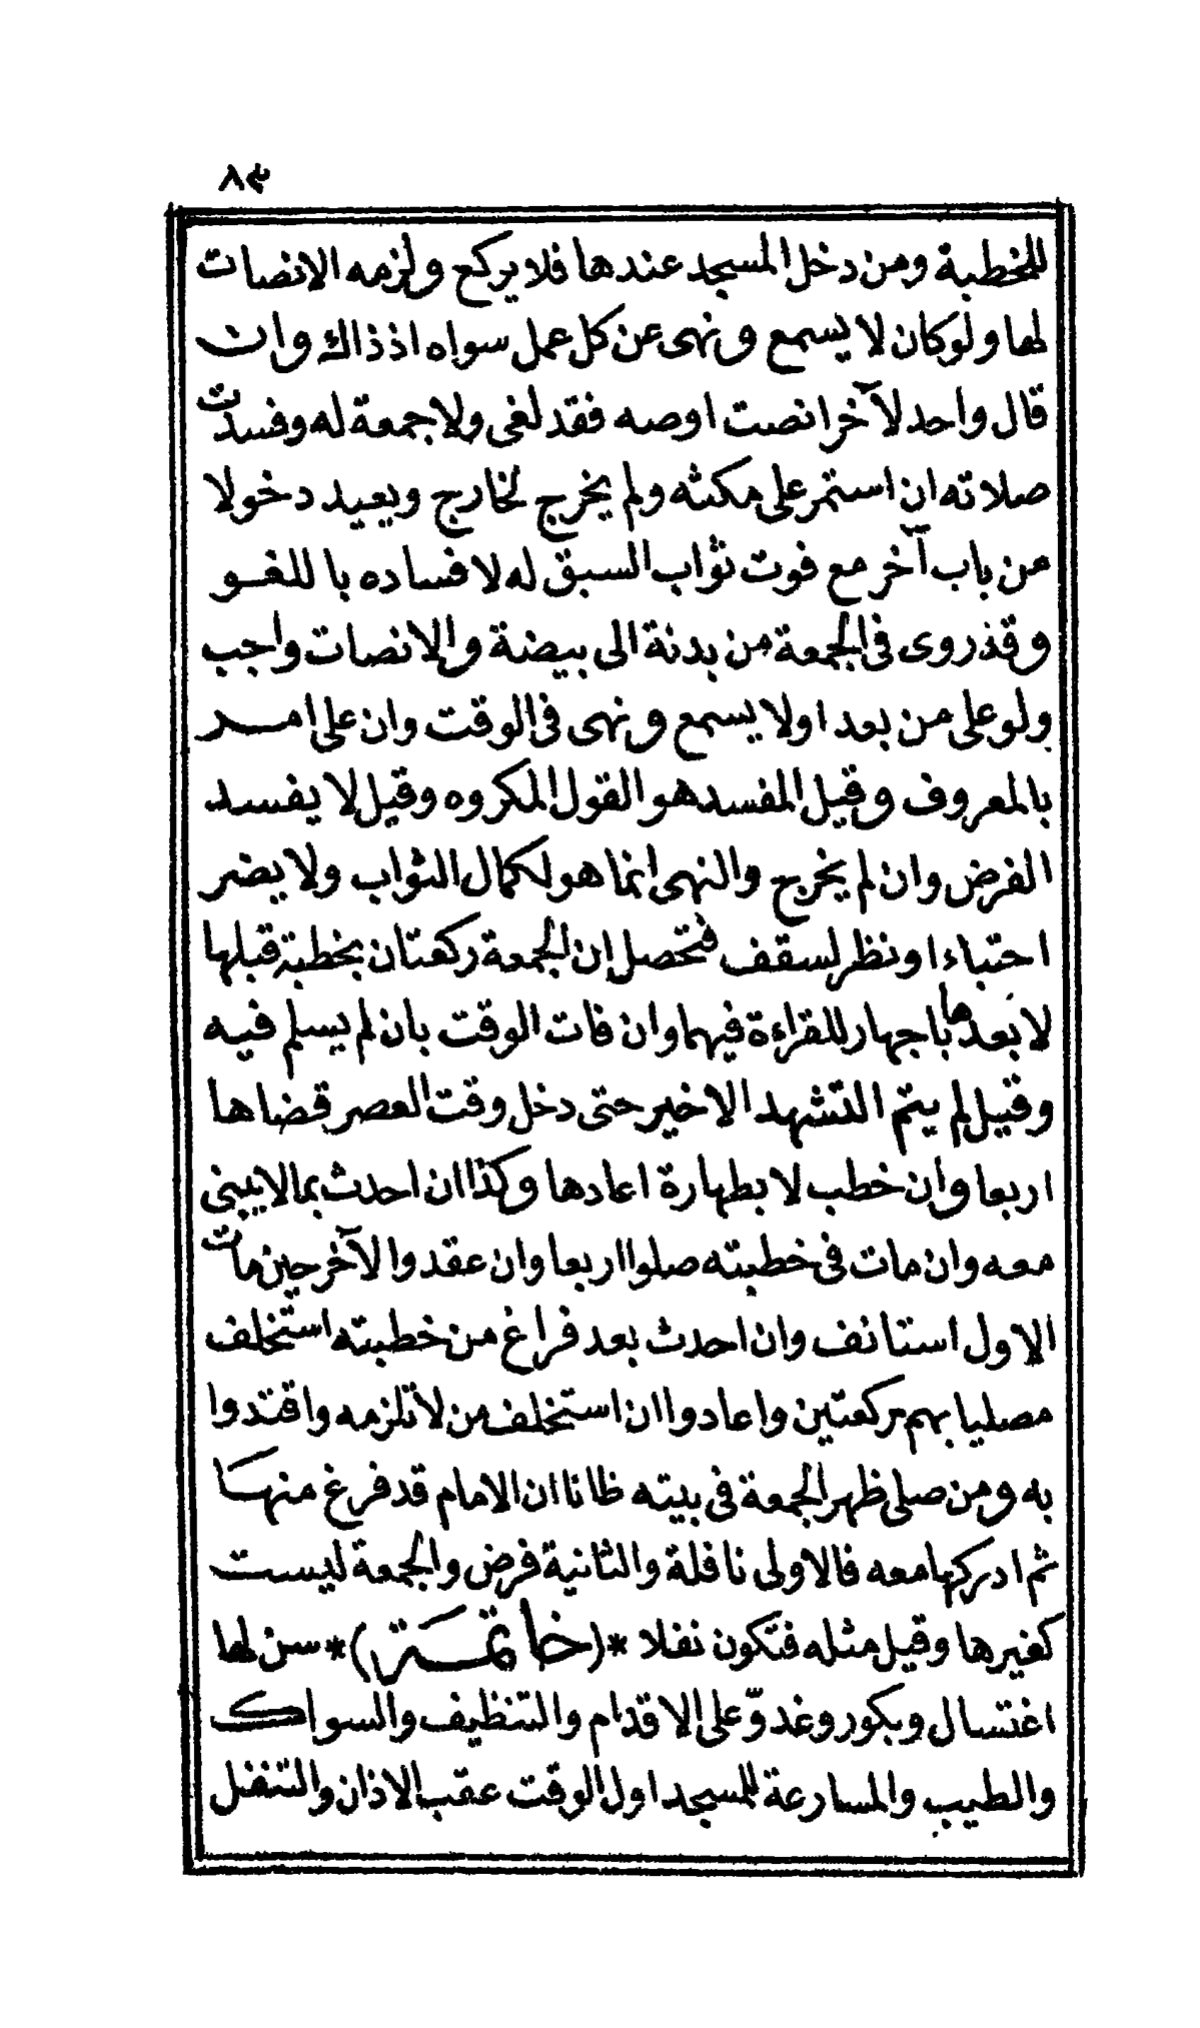 ٨٣
للخطبة ومن دخل المسجد عندها فلا يركع ولزمه الانصات
لها ولو كان لا يسمع ونهى عن كل عمل سواه اذ ذاك وان
قال واحد لآخر انصت اوصه فقد لغى ولا جمعة له وفسدت
صلاته ان استمر على مكثه ولم يخرج لخارج ويعيد دخولا
من باب آخر مع فوت ثواب السبق له لا فساده باللغو
وقذروى فى الجمعة من بدنة الى بيضة والانصات واجب
ولو على من بعد اولا يسمع ونهى فى الوقت وان على امر
بالمعروف وقيل المفسد هو القول المكروه وقيل لا يفسد
الفرض وان لم يخرج والنهى انما هو لكمال الثواب ولا يضر
احتباء او نظر لسقف فتحصل ان الجمعة ركعتان بخطبة قبلها
لا بعدها باجهار للقراءة فيهما وان فات الوقت بان لم يسلم فيه
وقيل لم يتم التشهد الاخير حتى دخل وقت العصر قضاها
اربعا وان خطب لا بطهارة اعادها وكذا ان احدث بما لا يبنى
معه وان مات فى خطبته صلوا اربعا وان عقدوا لآخر حين مات
الاول استانف وان احدث بعد فراغ من خطبته استخلف
مصليا بهم ركعتين واعادوا ان استخلف من لا تلزمه واقتدوا
به ومن صلى ظهر الجمعة فى بيته ظانا ان الامام قد فرغ منها
ثم ادركها معه فالاولى نافلة والثانية فرض والجمعة ليست
كغيرها وقيل مثله فتكون نفلا *(خاتمة)* سن لها
اغتسال وبكور وغدوّ على الاقدام والتنظيف والسواك
والطيب والمسارعة للمسجد اول الوقت عقب الاذان والتنفل